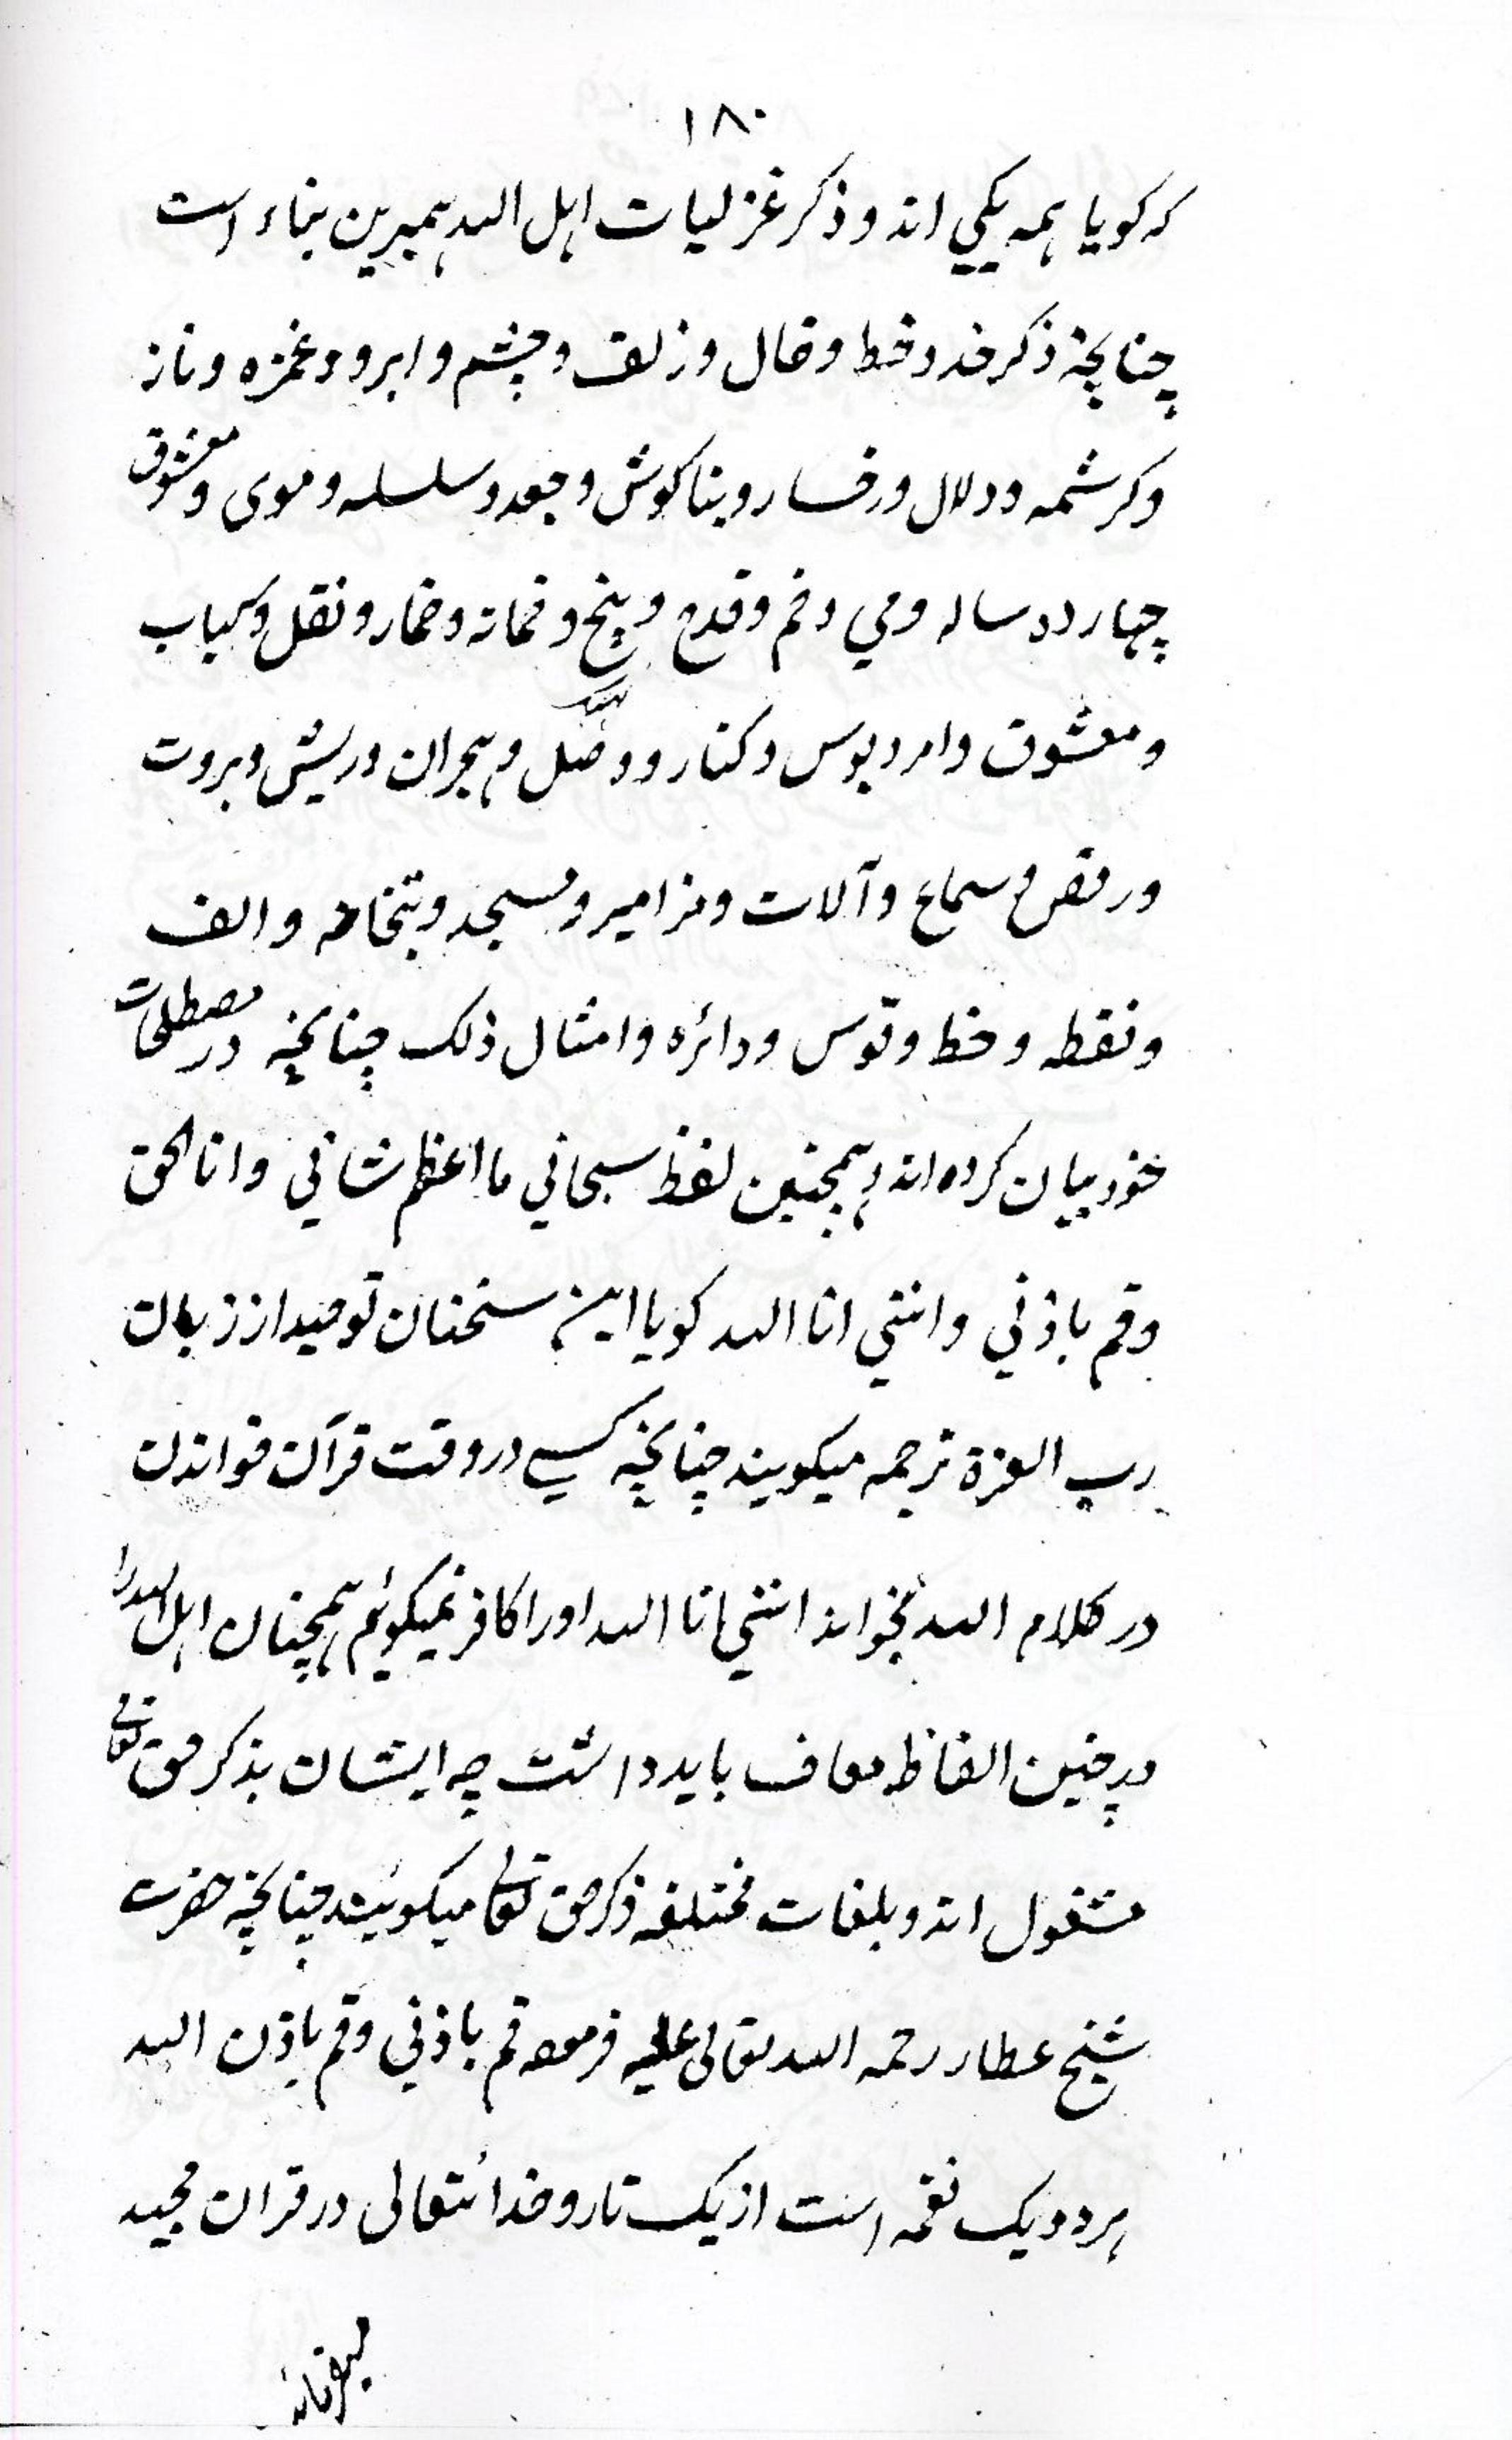 ۱۸۰
که کویا همه یکی اند و ذکر غزلیات اهل الله همبرین بناء است
چنانچه ذکر خد و خط و خال و زلف و چشم و ابرو و غمزه و ناز
و کرشمه و دلال و رخسار و بناکوش و جعد و سلسله و موی و معشوق
چهارده ساله و می و خم و قدح و خمخانه و خمار و نقل و کباب
و معشوق و امرد و بوس و کنار و وصل و هجران و ریش و بروت
و رقص و سماع و آلات و مزامیر و مسجد و بتخانه و الف
و نقطه و خط و قوس و دائره و امثال ذلک چنانچه در مصطلحات
خود بیان کرده اند و همچنین لفظ سبحانی ما اعظم شانی و انا الحق
و قم باذنی و اننی انا الله کویا این سخنان توحید از زبان
رب العزة ترجمه میکویند چنانچه کسی در وقت قرآن خواندن
در کلام الله بخواند اننی انا الله او را کافر نمیکوئیم همچنان اهل الله را
بدین الفاظ معاف باید داشت چه ایشان بذکر حق تعالی
مشغول اند و بلغات مختلفه ذکر حق تعالی میکویند چنانچه حضرت
شیخ عطار رحمه الله تعالی علیه فرموده قم باذنی و قم باذن الله
هر دو یک نغمه است از یک تار و خدائتعالی در قران مجید
میفرماید